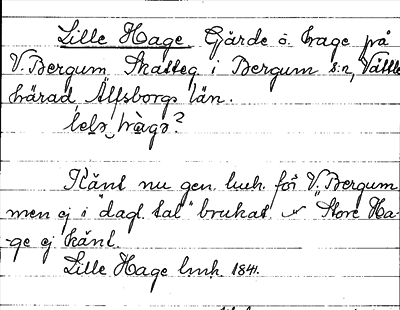 Lille Hage Gärde o. hage på
V. Bergum, Skatteg. i Bergum s:n, Vättle
härad, Älfsborgs län.
lɛlə hàgə?
Känt nu gen. innh. för V. Bergum
men ej i "dagl. tal" brukat. Store Ha-
ge ej känt.
Lille Hage 1841.